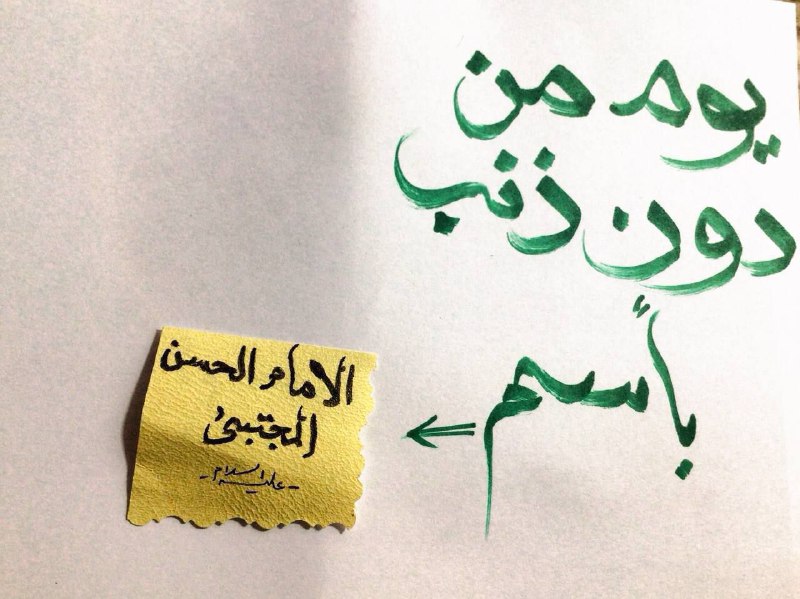 يوم من
دون ذنب
بأسم
الامام الحسن
المجتبئ
- عليه السلام -